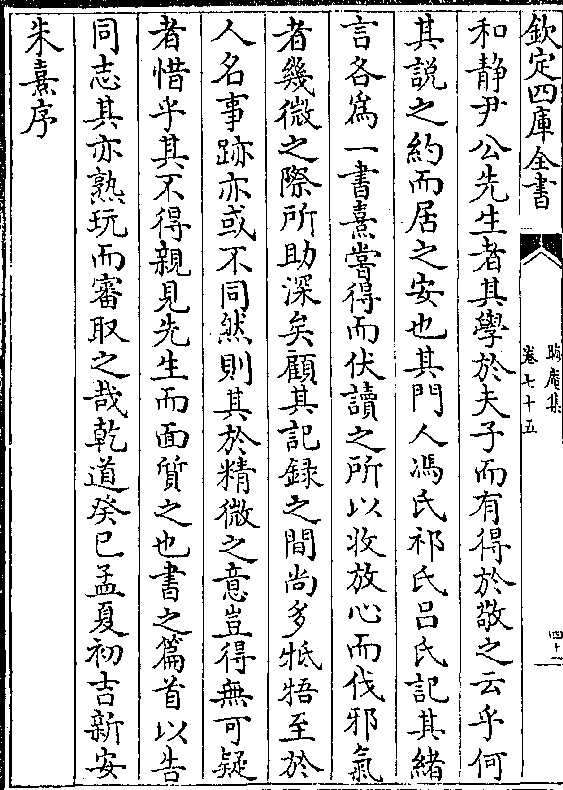 欽定四庫全書
晦庵集
卷七十五
四十一
和靜尹公先生者其學於夫子而有得於敬之云乎何
其說之約而居之安也其門人馮氏祁氏呂氏記其緒
言各爲一書熹嘗得而伏讀之所以收放心而伐邪氣
者幾微之際所助深矣顧其記録之間尚多牴牾至於
人名事跡亦或不同然則其於精微之意豈得無可疑
者惜乎其不得親見先生而面質之也書之篇首以告
同志其亦熟玩而審取之哉乾道癸巳孟夏初吉新安
朱熹序